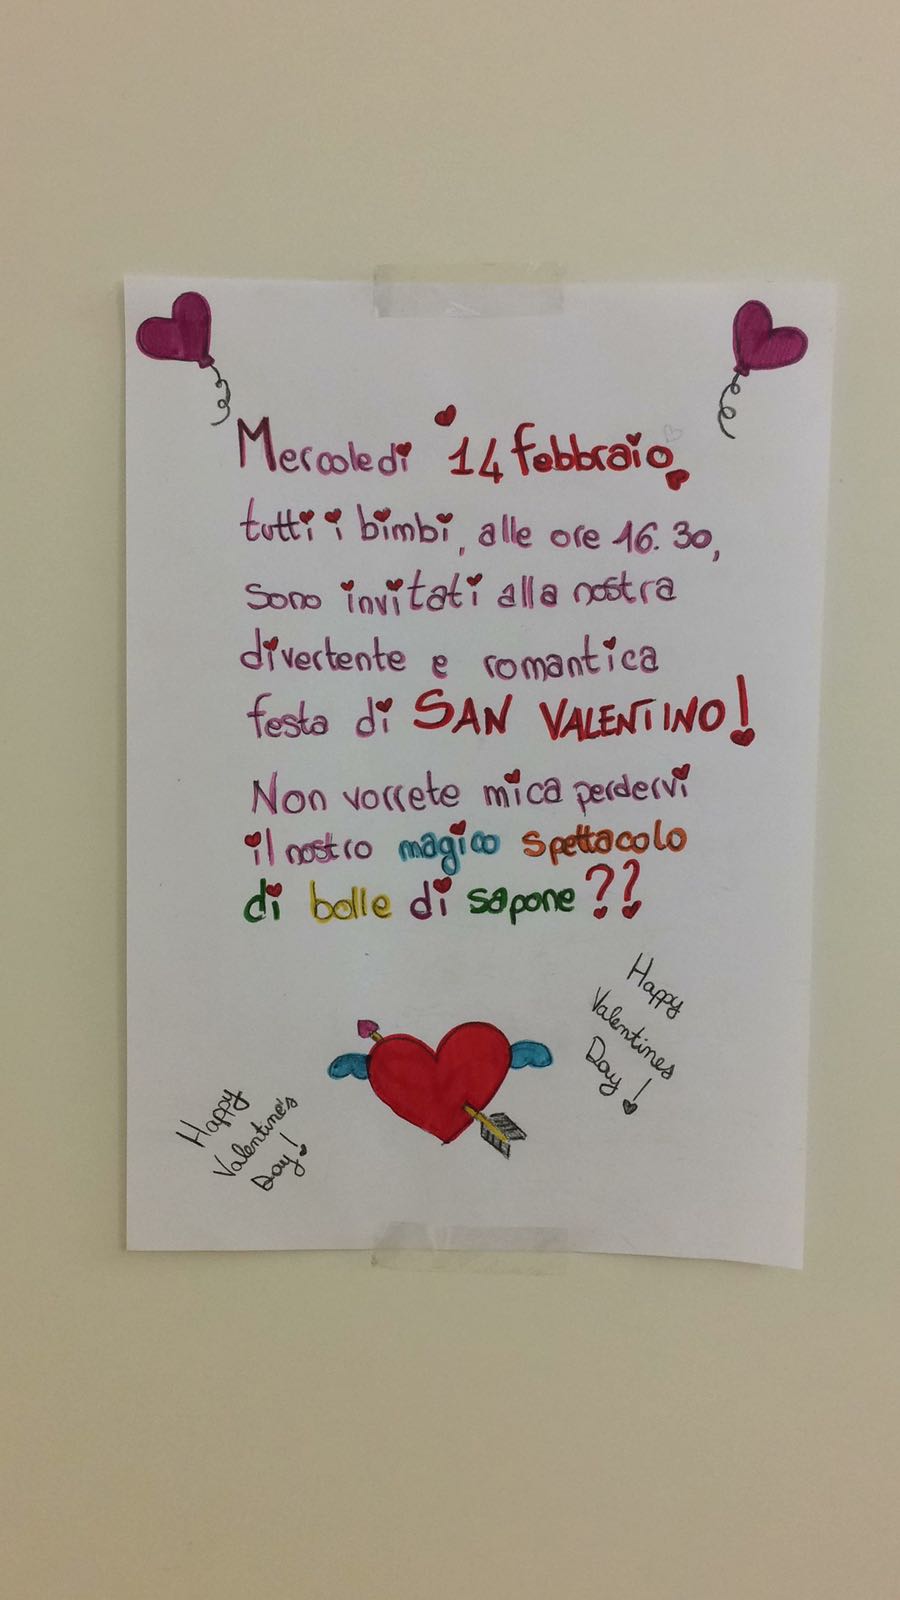 Mercoledi 14 febbraio
tutti i bimbi, alle ore 16.30,
sono invitati alla nostra
divertente e romantica
festa di SAN VALENTINO!
Non vorrete mica perdervi
il nostro magico spettacolo
di bolle di sapone??
Happy
Valentines
Day!
Happy
Valentine's
Day!